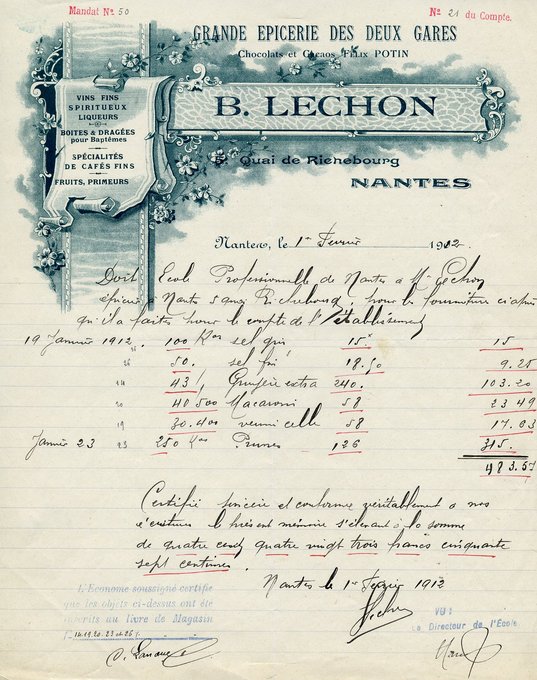 Mandat Nº 50
Nº 21 du Compte.
GRANDE EPICERIE DES DEUX GARES
Chocolats et Cacaos FÉLIX POTIN
B. LECHON
5, Quai de Richebourg
NANTES
VINS FINS
SPIRITUEUX
LIQUEURS
BOITES & DRAGÉES
pour Baptêmes
SPÉCIALITÉS
DE CAFÉS FINS
FRUITS, PRIMEURS
Nantes, le 1er Février 1912.
Doit Ecole Professionnelle de Nantes à Mr Lechon
épicier à Nantes 5 quai Richebourg, pour les fournitures ci après
qu'il a faites pour le compte de l'établissement
19 Janvier 1912. 100 Kos sel gris 15 15
50. sel fin 18.50 9.25
43 Gruyère extra 240. 103.20
20 40.500 Macaroni 58 23.49
19 30.400 vermicelle 58 17.03
Janvier 23 23 250 Kos Prunes 126 315.
483.57
Certifié sincère et conforme véritablement à nos
écritures le présent mémoire s'élevant à la somme
de quatre cent quatre vingt trois francs cinquante
sept centimes.
Nantes le 1er Février 1912
Lechon
L'Econome soussigné certifie
que les objets ci-dessus ont été
inscrits au livre de Magasin
VU:
Le Directeur de l'École